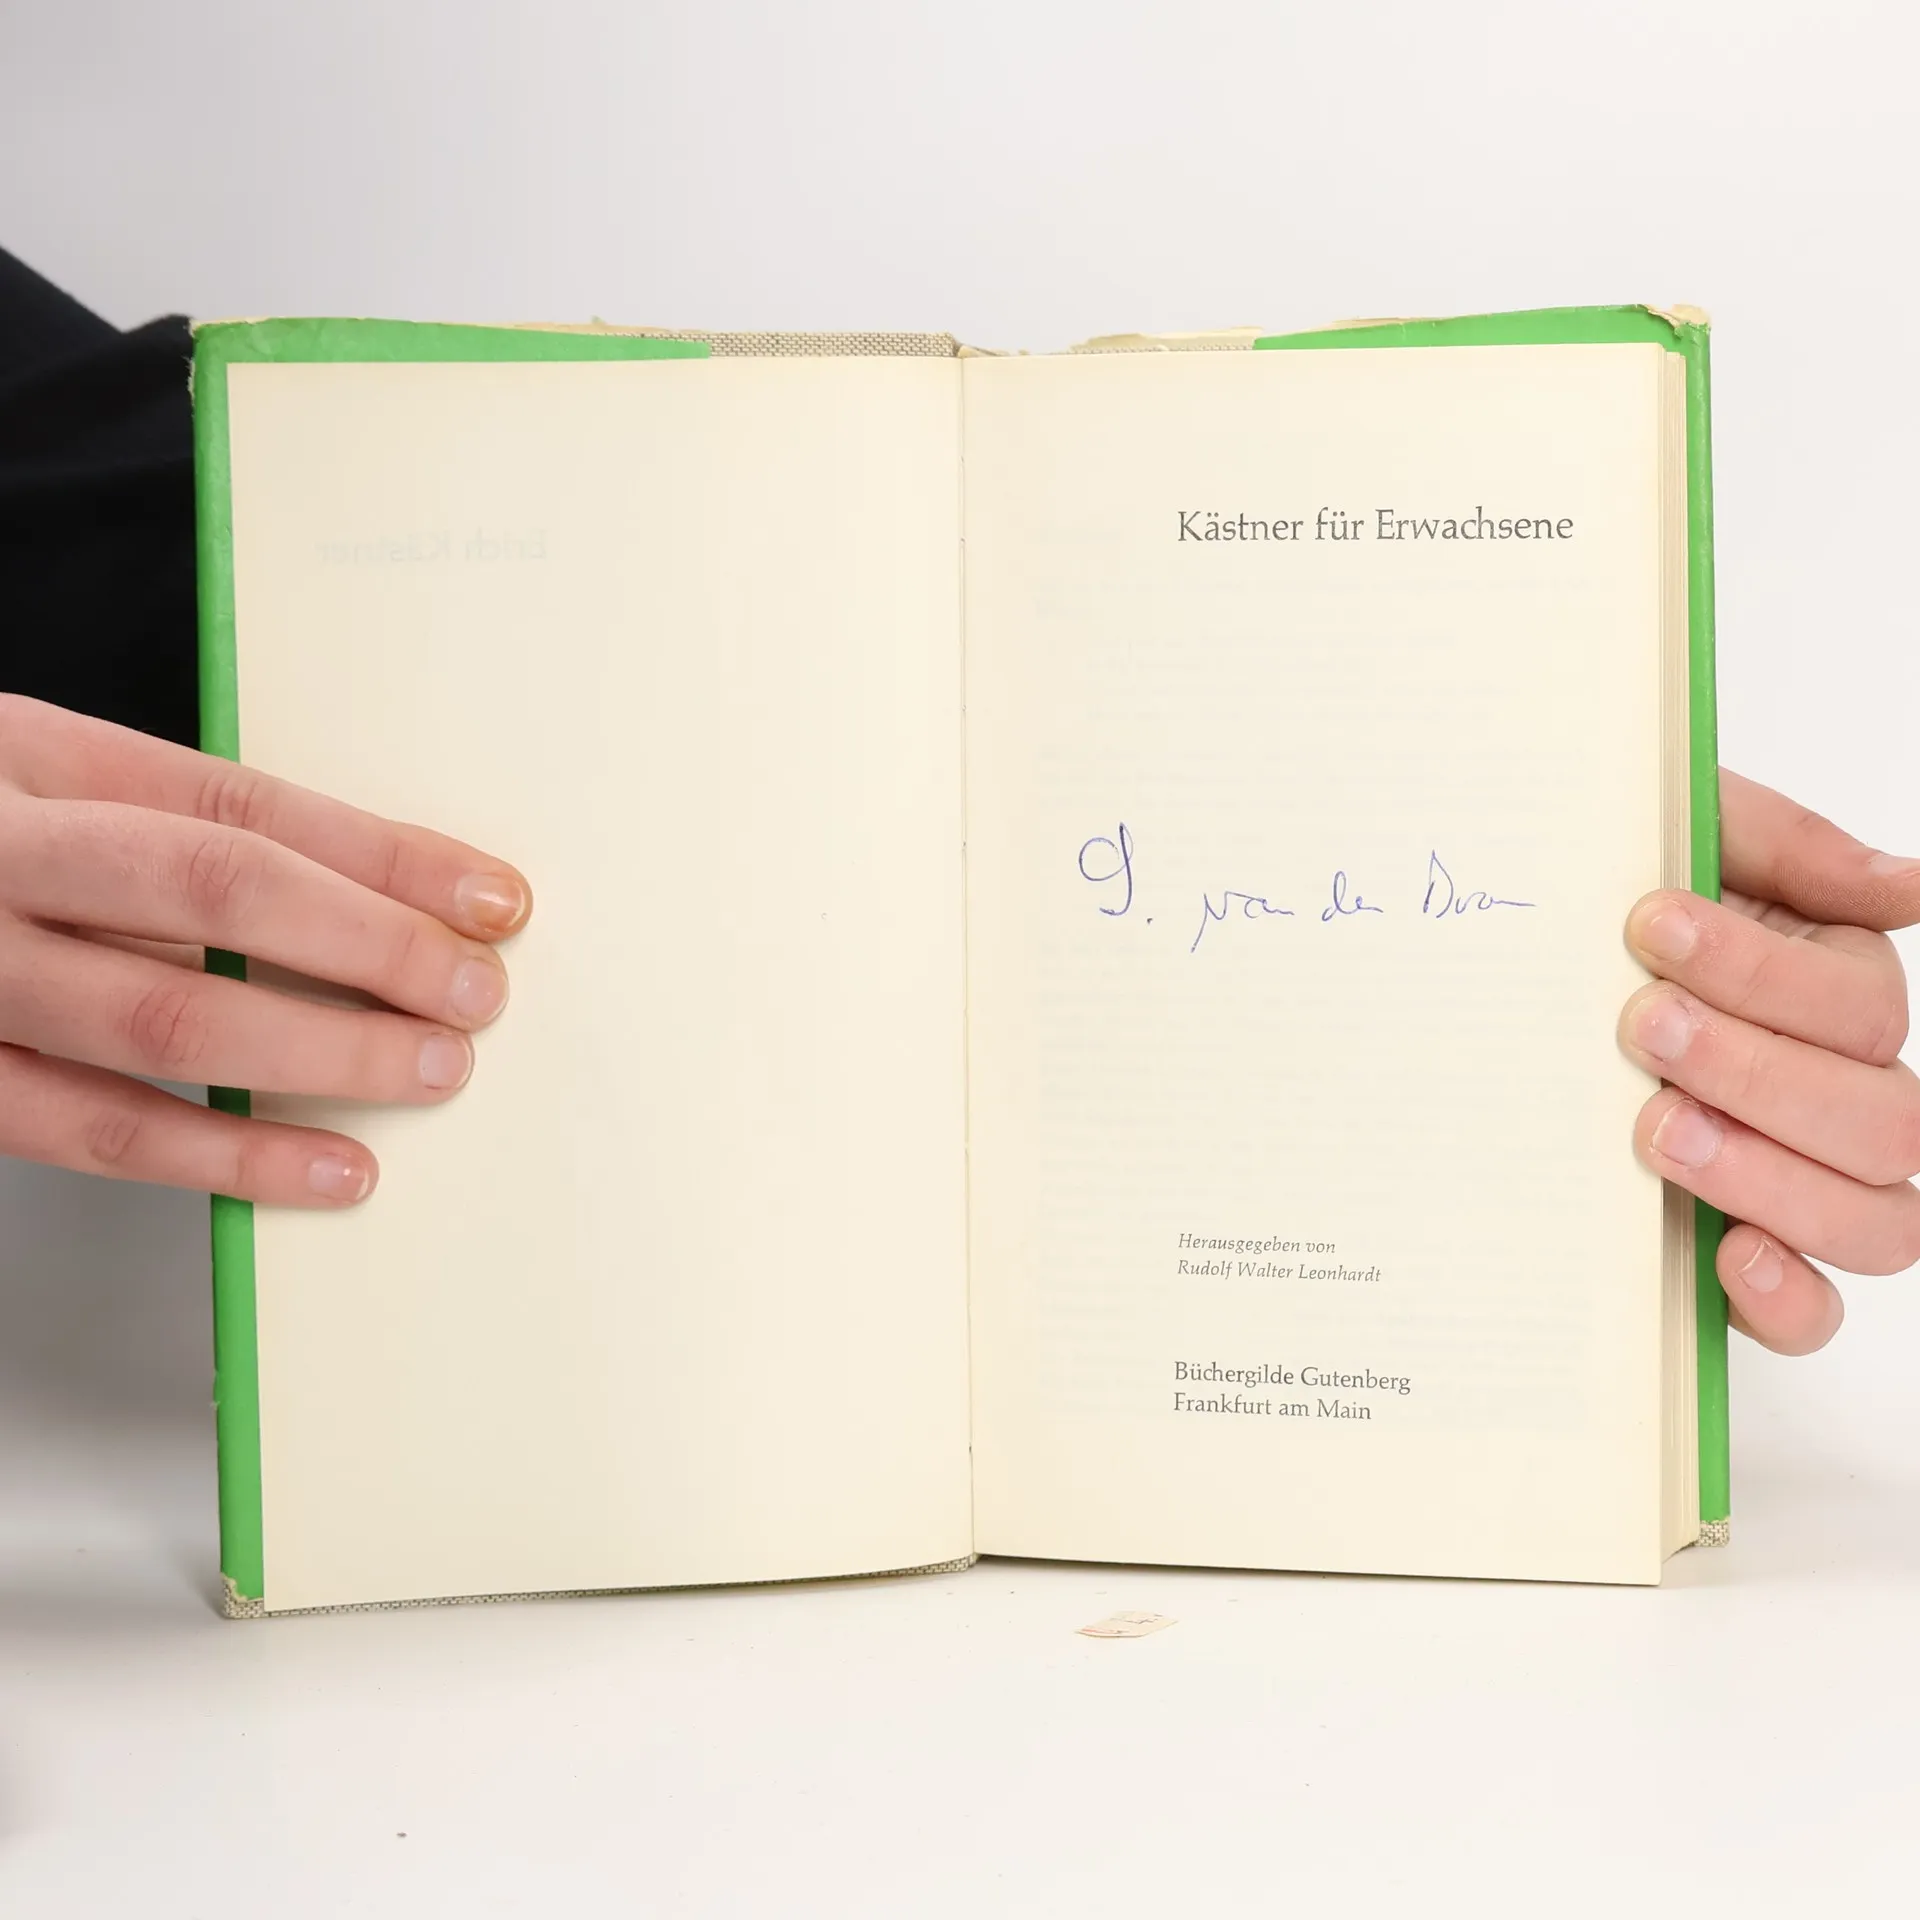 Erich Kästner
Kästner für Erwachsene
van der
Herausgegeben von
Rudolf Walter Leonhardt
Büchergilde Gutenberg
Frankfurt am Main